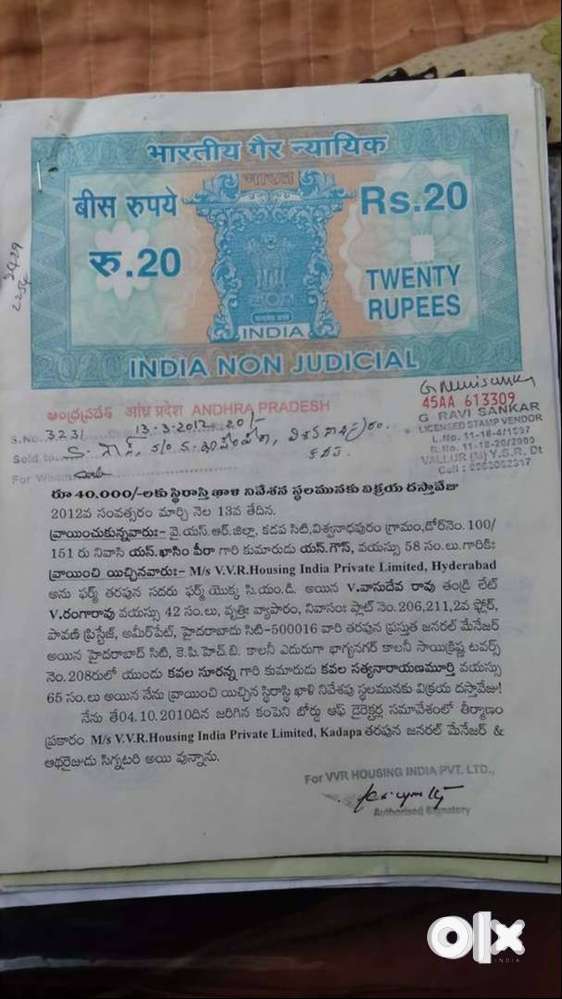 भारतीय गैर न्यायिक
भारत
बीस रुपये
Rs.20
रु.20
TWENTY
RUPEES
INDIA
INDIA NON JUDICIAL
ఆంధ్రప్రదేశ్ आंध्र प्रदेश ANDHRA PRADESH
45AA 613309
S.No. 3231 13-3-2012 20/-
G RAVI SANKAR
LICENSED STAMP VENDOR
Sold to
VALLUR (M) Y.S.R. Dt
For Whom
రూ 40,000/-లకు స్థిరాస్తి ఖాళి నివేశన స్థలమునకు విక్రయ దస్తావేజు
2012వ సంవత్సరం మార్చి నెల 13వ తేదిన.
వ్రాయించుకున్నవారు:- వై.యస్.ఆర్.జిల్లా, కడప సిటి,విశ్వనాధపురం గ్రామం,డోర్‌నెం.100/
151 రు నివాసి యస్.ఖాసిం పీరా గారి కుమారుడు యస్.గౌస్, వయస్సు 58 సం.లు.గారికి:
వ్రాయించి యిచ్చినవారు:- M/s V.V.R.Housing India Private Limited, Hyderabad
అను ఫర్మ్ తరపున సదరు ఫర్మ్ యొక్క సి.యం.డి. అయిన V.వాసుదేవ రావు తండ్రి లేట్
V.రంగారావు వయస్సు 42 సం.లు, వృత్తి: వ్యాపారం, నివాసం: ప్లాట్ నెం.206,211,2వ ఫ్లోర్,
పావణి ప్రిస్టేజ్, అమీర్‌పేట్, హైదరాబాదు సిటి-500016 వారి తరపున ప్రస్తుత జనరల్ మేనేజర్
అయిన హైదరాబాద్ సిటి, కె.పి.హెచ్.బి. కాలని ఎదురుగా భాగ్యనగర్ కాలని సాయిక్రిష్ణ టవర్స్
నెం.208రులో యుండు కవల సూరన్న గారి కుమారుడు కవల సత్యనారాయణమూర్తి వయస్సు
65 సం.లు అయిన నేను వ్రాయించి యిచ్చిన స్థిరాస్తి ఖాళి నివేశపు స్థలమునకు విక్రయ దస్తావేజు!
నేను తే04.10.2010దిన జరిగిన కంపెని బోర్డు ఆఫ్ డైరెక్టర్ల సమావేశంలో తీర్మాణం
ప్రకారం M/s V.V.R.Housing India Private Limited, Kadapa తరపున జనరల్ మేనేజర్ &
ఆథరైజుడు సిగ్నటరి అయి వున్నాను.
For VVR HOUSING INDIA PVT. LTD.,
Authorised Signatory
olx
INDIA